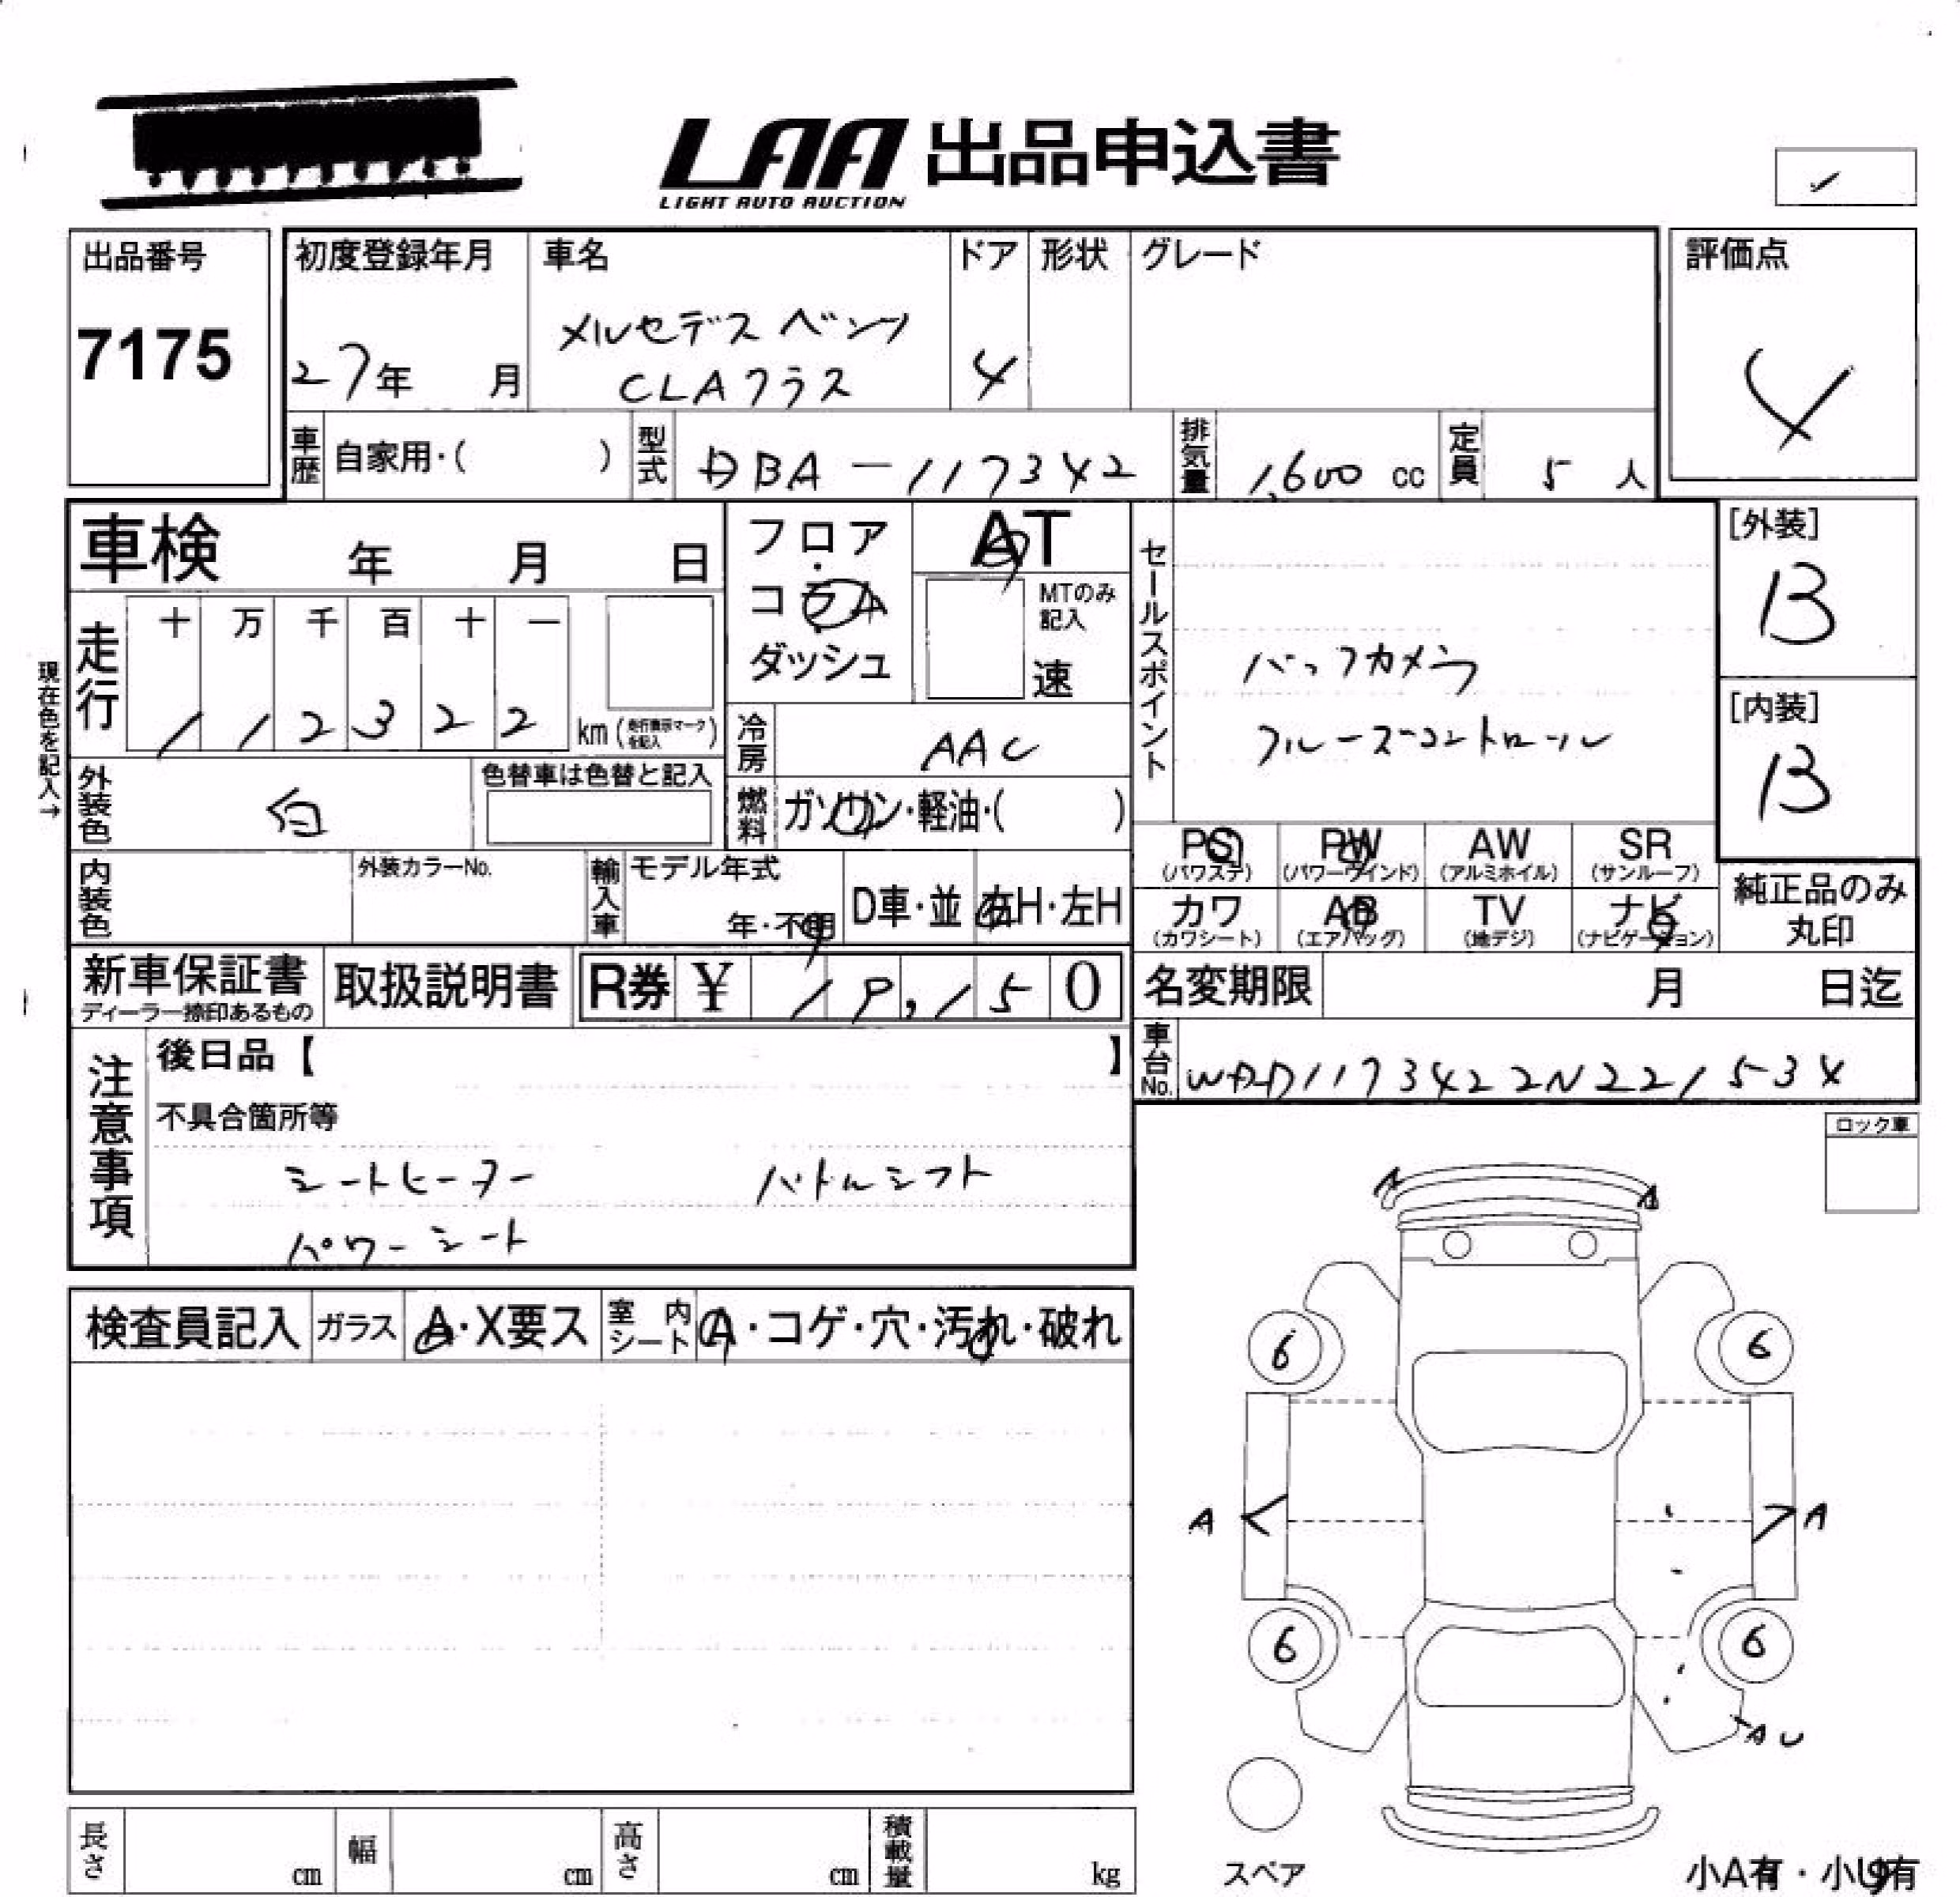 LAA 出品申込書
LIGHT AUTO AUCTION
出品番号
7175
初度登録年月
27年 月
車名
メルセデス ベンツ
CLAクラス
ドア
4
形状
グレード
評価点
4
車歴 自家用・( )
型式 DBA-117342
排気量 1,600 cc
定員 5 人
車検 年 月 日
フロア
コラム
ダッシュ
AT
MTのみ
記入
速
セールスポイント
バックカメラ
クルーズコントロール
[外装]
B
[内装]
B
現在色を記入→
走行
十 万 千 百 十 一
1 1 2 3 2 2 km (走行表示マークを記入)
冷房 AAC
外装色 白
色替車は色替と記入
燃料 ガソリン・軽油・( )
PS (パワステ)
PW (パワーウインド)
AW (アルミホイル)
SR (サンルーフ)
カワ (カワシート)
AB (エアバッグ)
TV (地デジ)
ナビ (ナビゲーション)
純正品のみ
丸印
内装色
外装カラーNo.
輸入車
モデル年式
年・不明
D車・並
右H・左H
新車保証書
ディーラー捺印あるもの
取扱説明書
R券 ¥ 19,150
名変期限 月 日迄
車台No. WDD1173422N221534
注意事項
後日品【 】
不具合箇所等
シートヒーター パドルシフト
パワーシート
ロック車
A A
検査員記入
ガラス A・X要ス
室内シート A・コゲ・穴・汚れ・破れ
6 6
A A
6 6
AU
スペア
小A有・小U有
長さ cm
幅 cm
高さ cm
積載量 kg